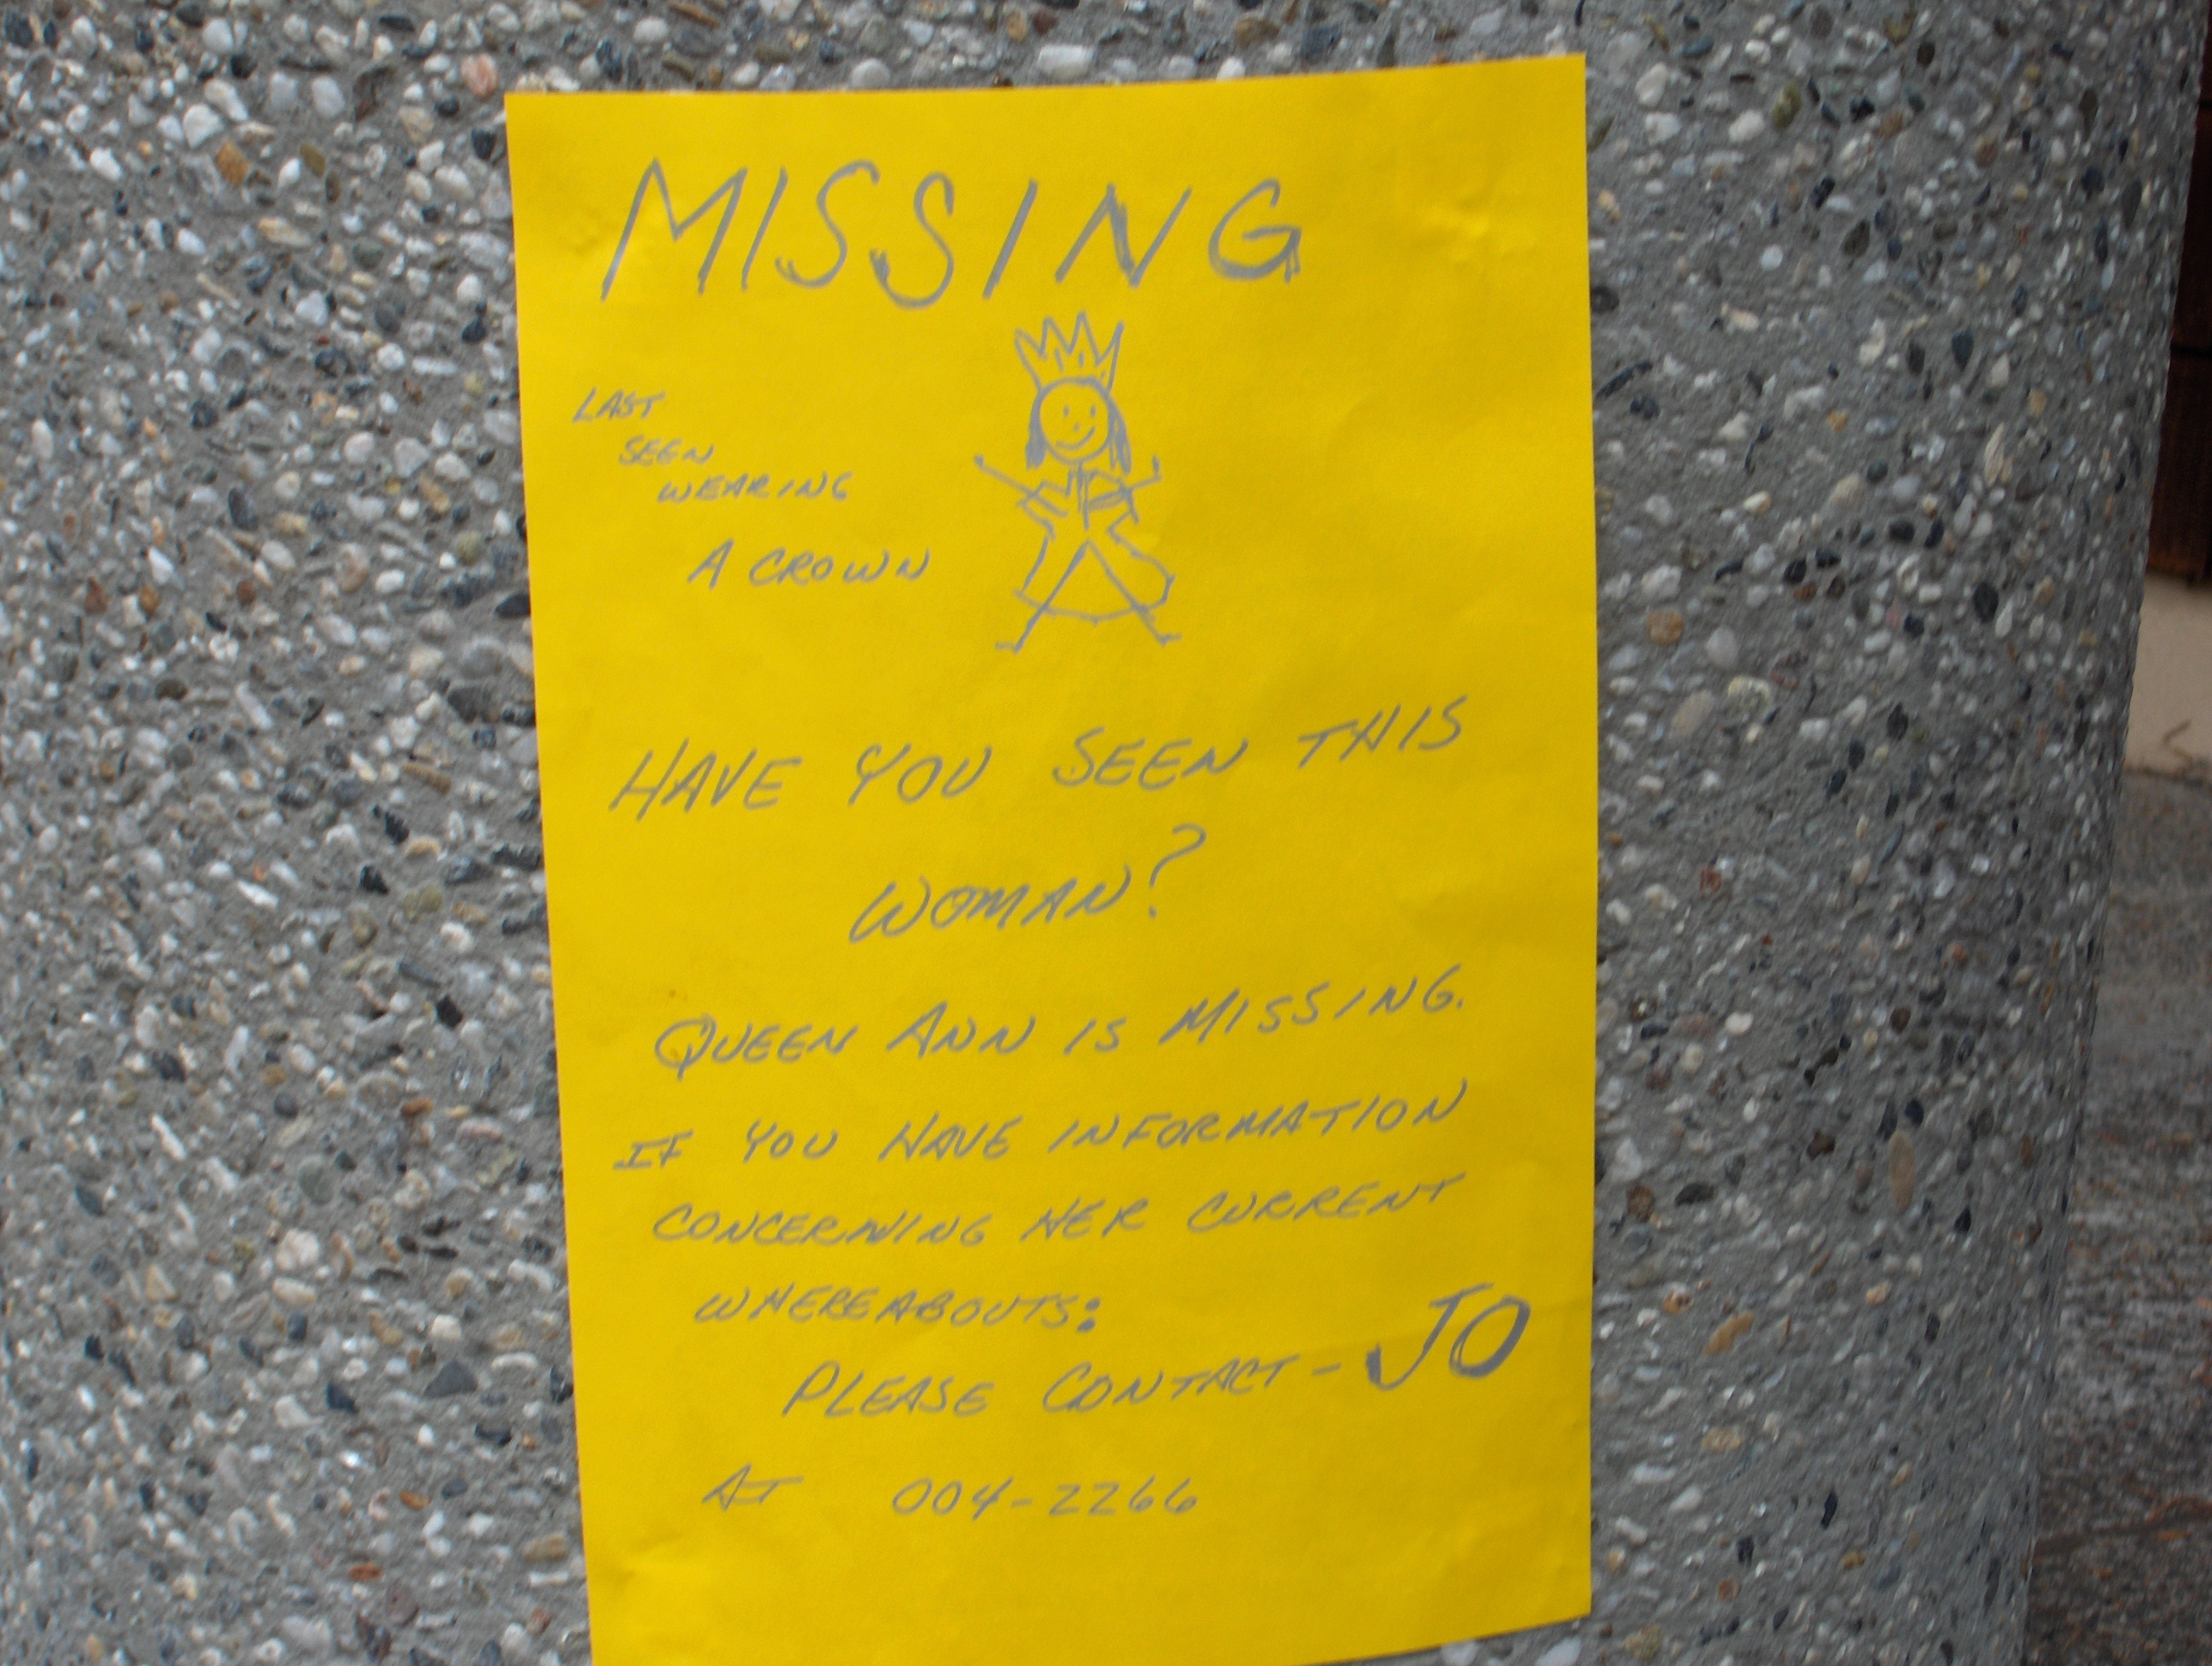 MISSING
LAST
SEEN
WEARING
A CROWN
HAVE YOU SEEN THIS
WOMAN?
QUEEN ANN IS MISSING.
IF YOU HAVE INFORMATION
CONCERNING HER CURRENT
WHEREABOUTS:
PLEASE CONTACT - JO
AT 004-2266